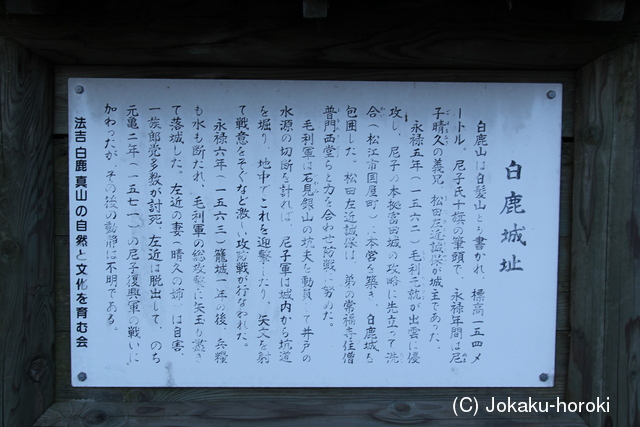 白鹿城址
白鹿山は白髪山とも書かれ、標高一五四メ
ートル、尼子氏十旗の筆頭で、永禄年間は尼
子晴久の義兄、松田左近誠保が城主であった。
永禄五年(一五六二)毛利元就が出雲に侵
攻し、尼子の本拠富田城の攻略に先立って洗
合(松江市国屋町)に本営を築き、白鹿城を
包囲した。松田左近誠保は、弟の常福寺住僧
普門西堂らと力を合わせ防戦に努めた。
毛利軍は石見銀山の坑夫を動員して井戸の
水源の切断を計れば、尼子軍は城内から坑道
を掘り、地中でこれを迎撃したり、矢文を射
て戦意をそぐなど激しい攻防戦が行なわれた。
永禄六年(一五六三)籠城一年の後、兵糧
も水も断たれ、毛利軍の総攻撃に矢玉も尽き
て落城した。左近の妻(晴久の姉)は自害、
一族郎党多数が討死、左近は脱出して、のち
元亀二年(一五七一)の尼子復興軍の戦いに
加わったが、その後の動静は不明である。
法吉 白鹿 真山の自然と文化を育む会
(C) Jokaku-horoki